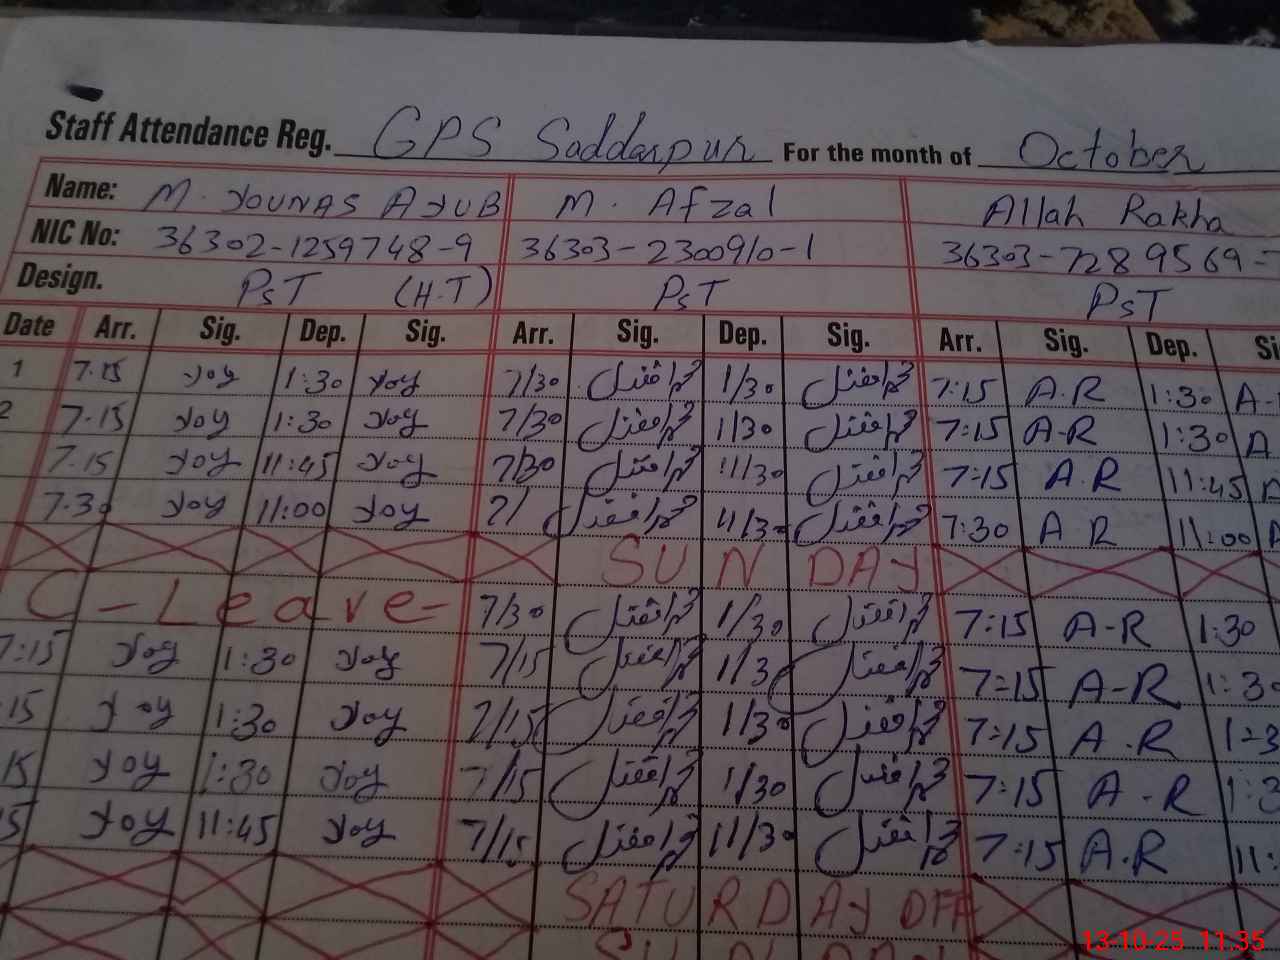 Staff Attendance Reg. GPS Saddarpur For the month of October
Name: M. YOUNAS AYUB M. Afzal Allah Rakha
NIC No: 36302-1259748-9 36303-2300910-1 36303-7289569-
Design. PST (H.T) PST PST
Date Arr. Sig. Dep. Sig. Arr. Sig. Dep. Sig. Arr. Sig. Dep. Si
1 7.15 1:30 7/30 محمد افضل 1/30 محمد افضل 7:15 A.R 1:30 A-
2 7.15 1:30 7/30 محمد افضل 1/30 محمد افضل 7:15 A-R 1:30 A
7.15 11:45 7/30 محمد افضل 11/30 محمد افضل 7:15 A.R 11:45
7.30 11:00 محمد افضل 11/30 محمد افضل 7:30 A R 11:00
SUNDAY
C-Leave- 7/30 محمد افضل 1/30 محمد افضل 7:15 A-R 1:30
7:15 1:30 7/15 محمد افضل 1/3 محمد افضل 7:15 A-R 1:30
15 1:30 7/15 محمد افضل 1/30 محمد افضل 7:15 A.R
15 1:30 7/15 محمد افضل 1/30 محمد افضل 7:15 A-R 1:3
5 11:45 7/15 محمد افضل 11/30 محمد افضل 7:15 A.R 11:
SATURDAY OFF
13-10-25 11:35